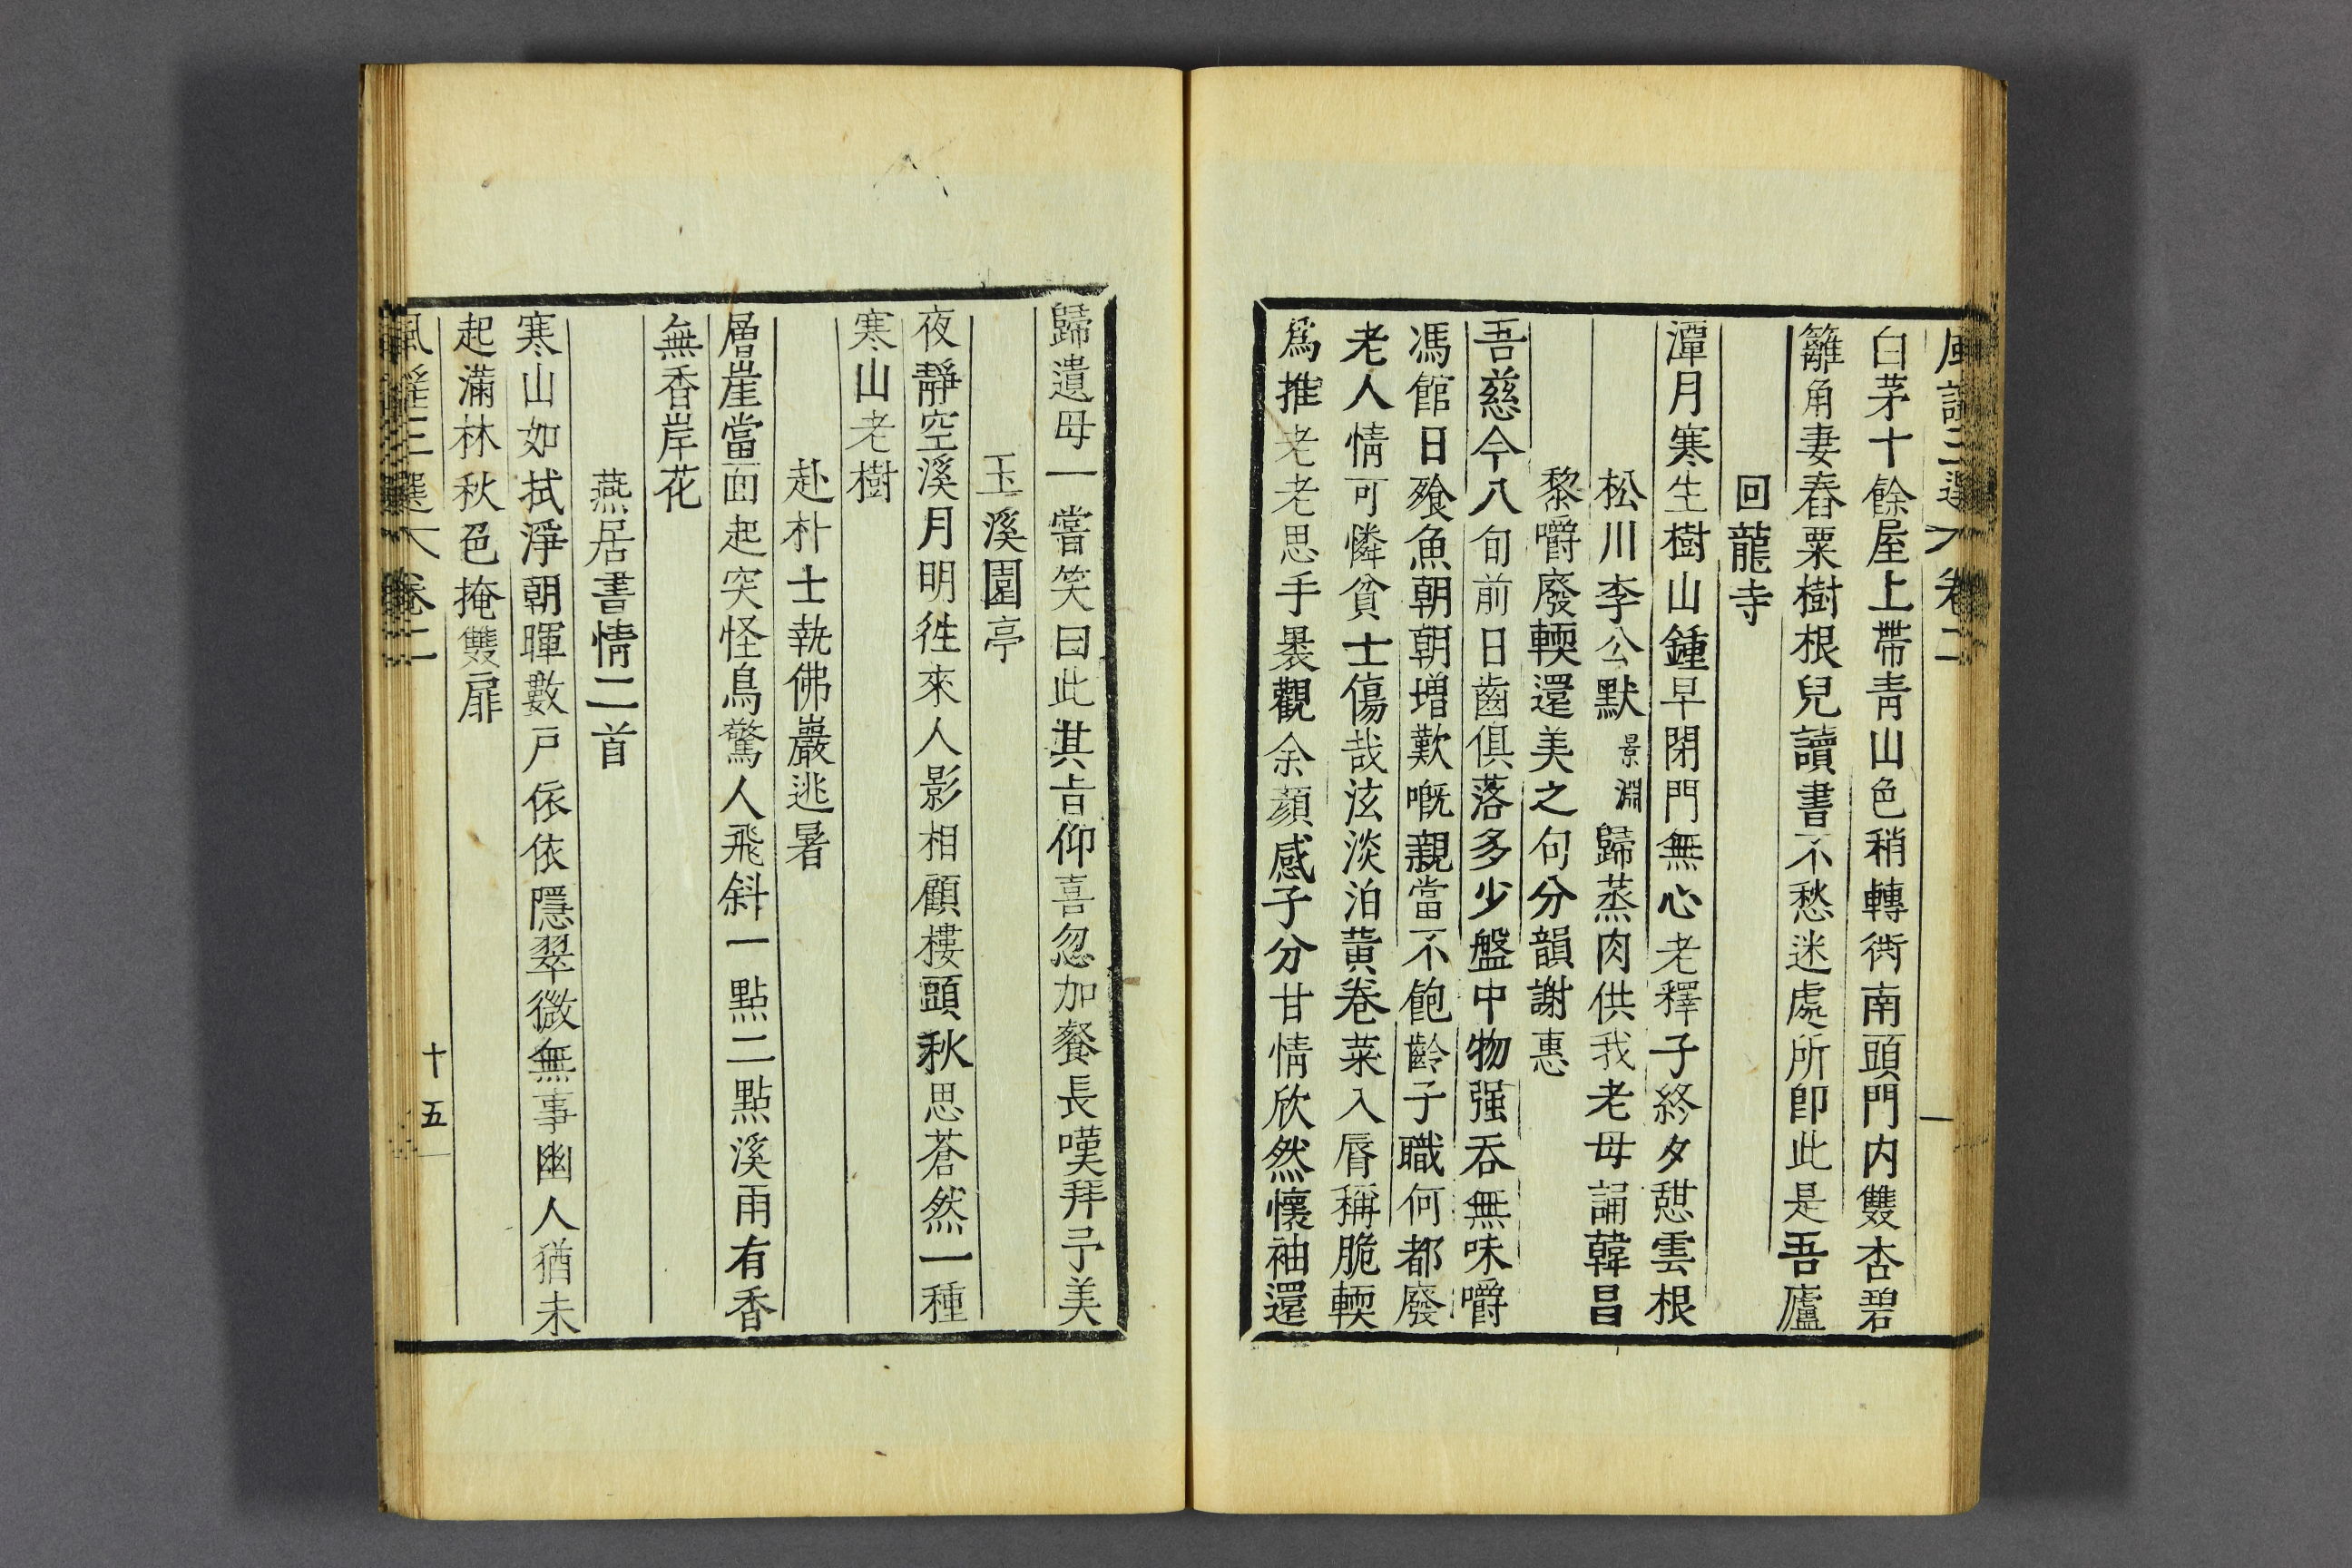 風謠三選 卷二
白茅十餘屋上帶靑山色稍轉衖南頭門内雙杏碧
籬角妻舂粟樹根兒讀書不愁迷處所卽此是吾廬
回龍寺
潭月寒生樹山鍾早閉門無心老釋子終夕憇雲根
松川李公默景淵歸蒸肉供我老母誦韓昌
黎嚼廢輭還美之句分韻謝惠
吾慈今八旬前日齒俱落多少盤中物强吞無味嚼
馮館日飱魚朝朝增歎嘅親當不飽齡子職何都廢
老人情可憐貧士傷哉泫淡泊黃卷菜入脣稱脆輭
爲推老老思手暴觀余顏感子分甘情欣然懷袖還
歸遺母一嘗笑曰此其旨仰喜忽加餐長嘆拜予美
玉溪園亭
夜靜空溪月明徃來人影相顧樓頭秋思蒼然一種
寒山老樹
赴朴士執佛巖逃暑
層崖當面起突怪鳥驚人飛斜一點二點溪雨有香
無香岸花
燕居書情二首
寒山如拭淨朝暉數戶依依隱翠微無事幽人猶未
起滿林秋色掩雙扉
風謠三選 卷二
十五